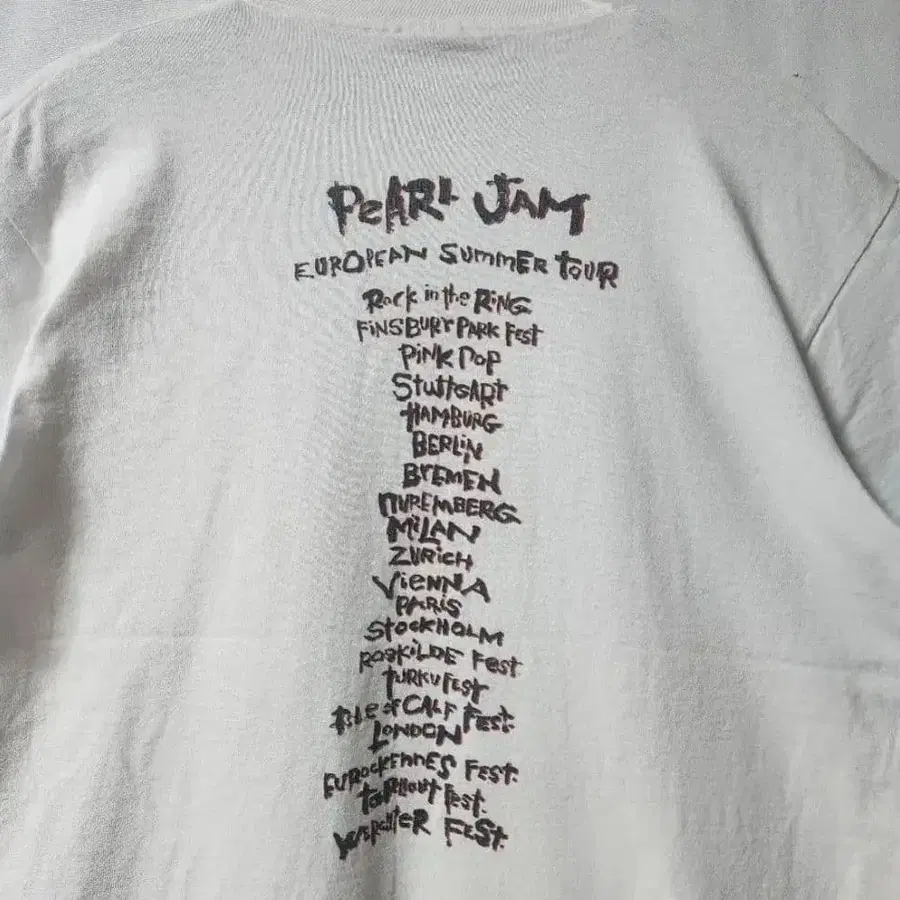 PEARL JAM
EUROPEAN SUMMER TOUR
Rock in the RiNG
FiNSBURY PARK FEST
PiNK POP
STUTTGART
HAMBURG
BERLiN
BREMEN
NUREMBERG
MiLAN
ZURiCH
ViENNA
PARiS
STOCKHOLM
ROSKiLDE FEST
TURKU FEST
iSLE of CALF FEST.
LONDON
EUROCKENNES FEST.
TORHOUT FEST.
WERCHTER FEST.